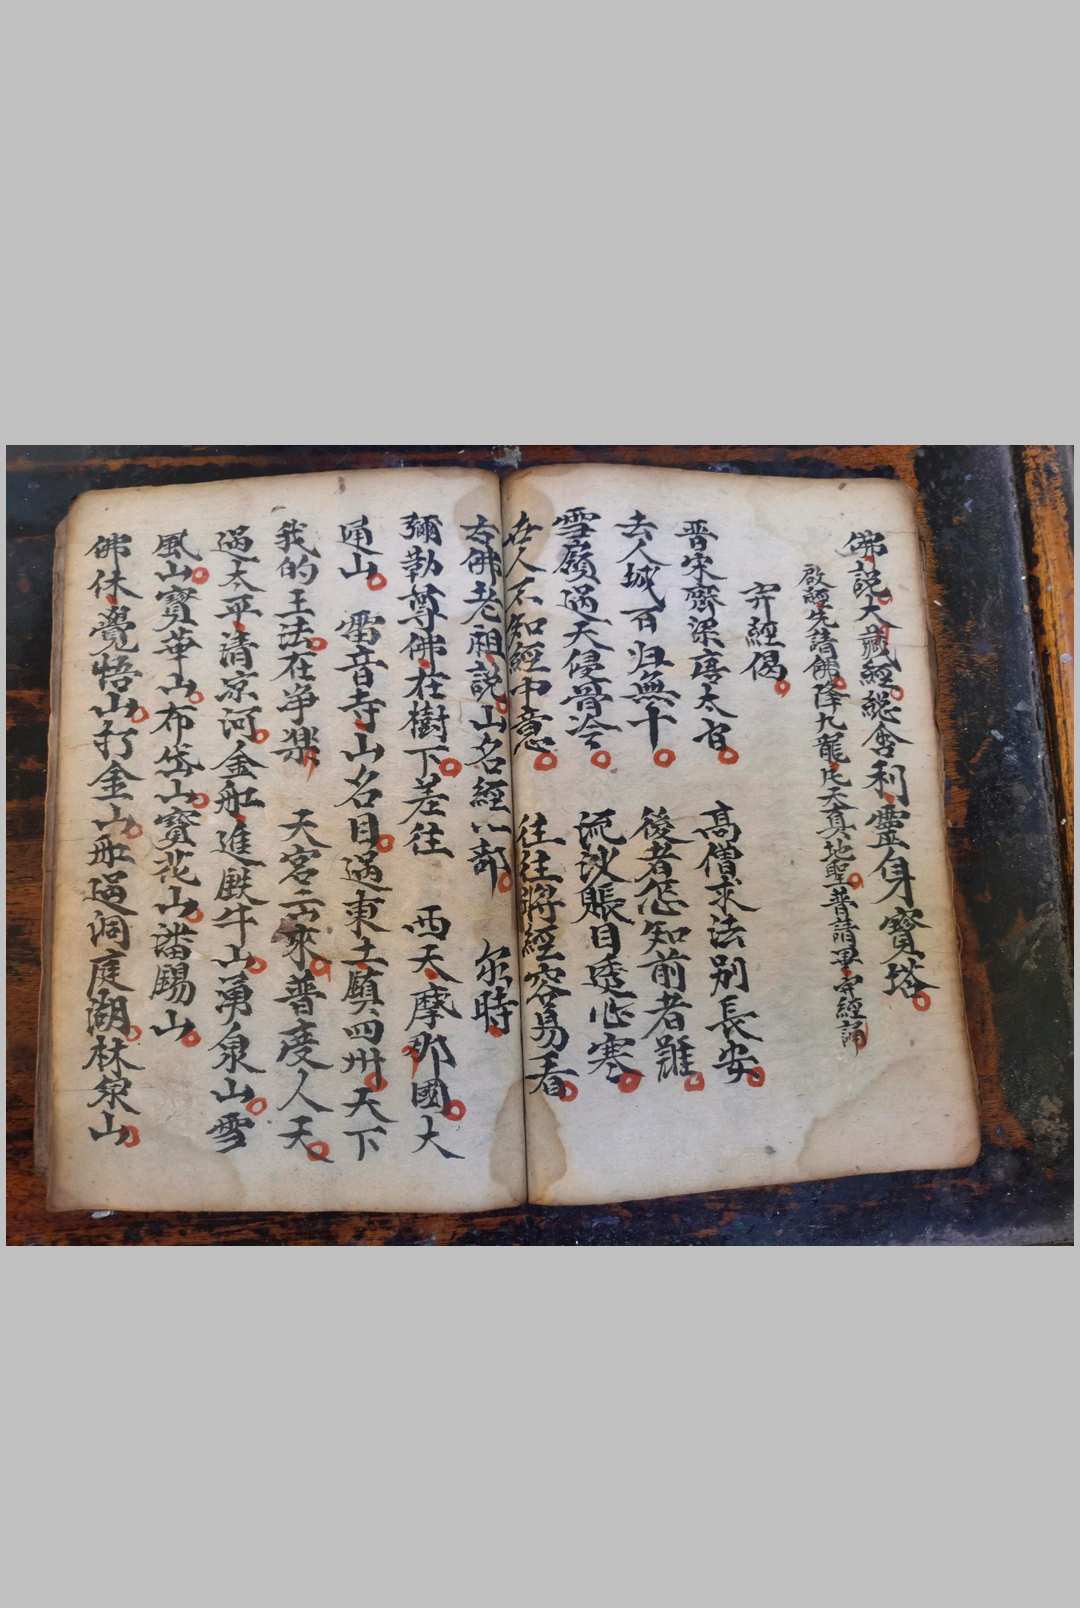 佛說大藏經總舍利靈身寶塔
啟經先請佛降九龍氏天真地聖普請眾 經誦
經偈
晋宋齊梁唐太 高僧求法別長安
去人城百归無十 後者怎知前者難
雪嶺過天侵骨冷 流沙賬目透心寒
世人不知經中意 往往將經容易看
右佛老祖說山名經一部 尔時
彌勒尊佛在樹下差往 西天摩那國大
通山 雷音寺山名目過東土願四州天下
我的王法在净樂 天宮二來普度人天
過太平清凉河金船進鉄牛山湧泉山雪
風山寶華山布袋山寶花山潘賜山
佛休覺悟山打金山船過洞庭湖林泉山